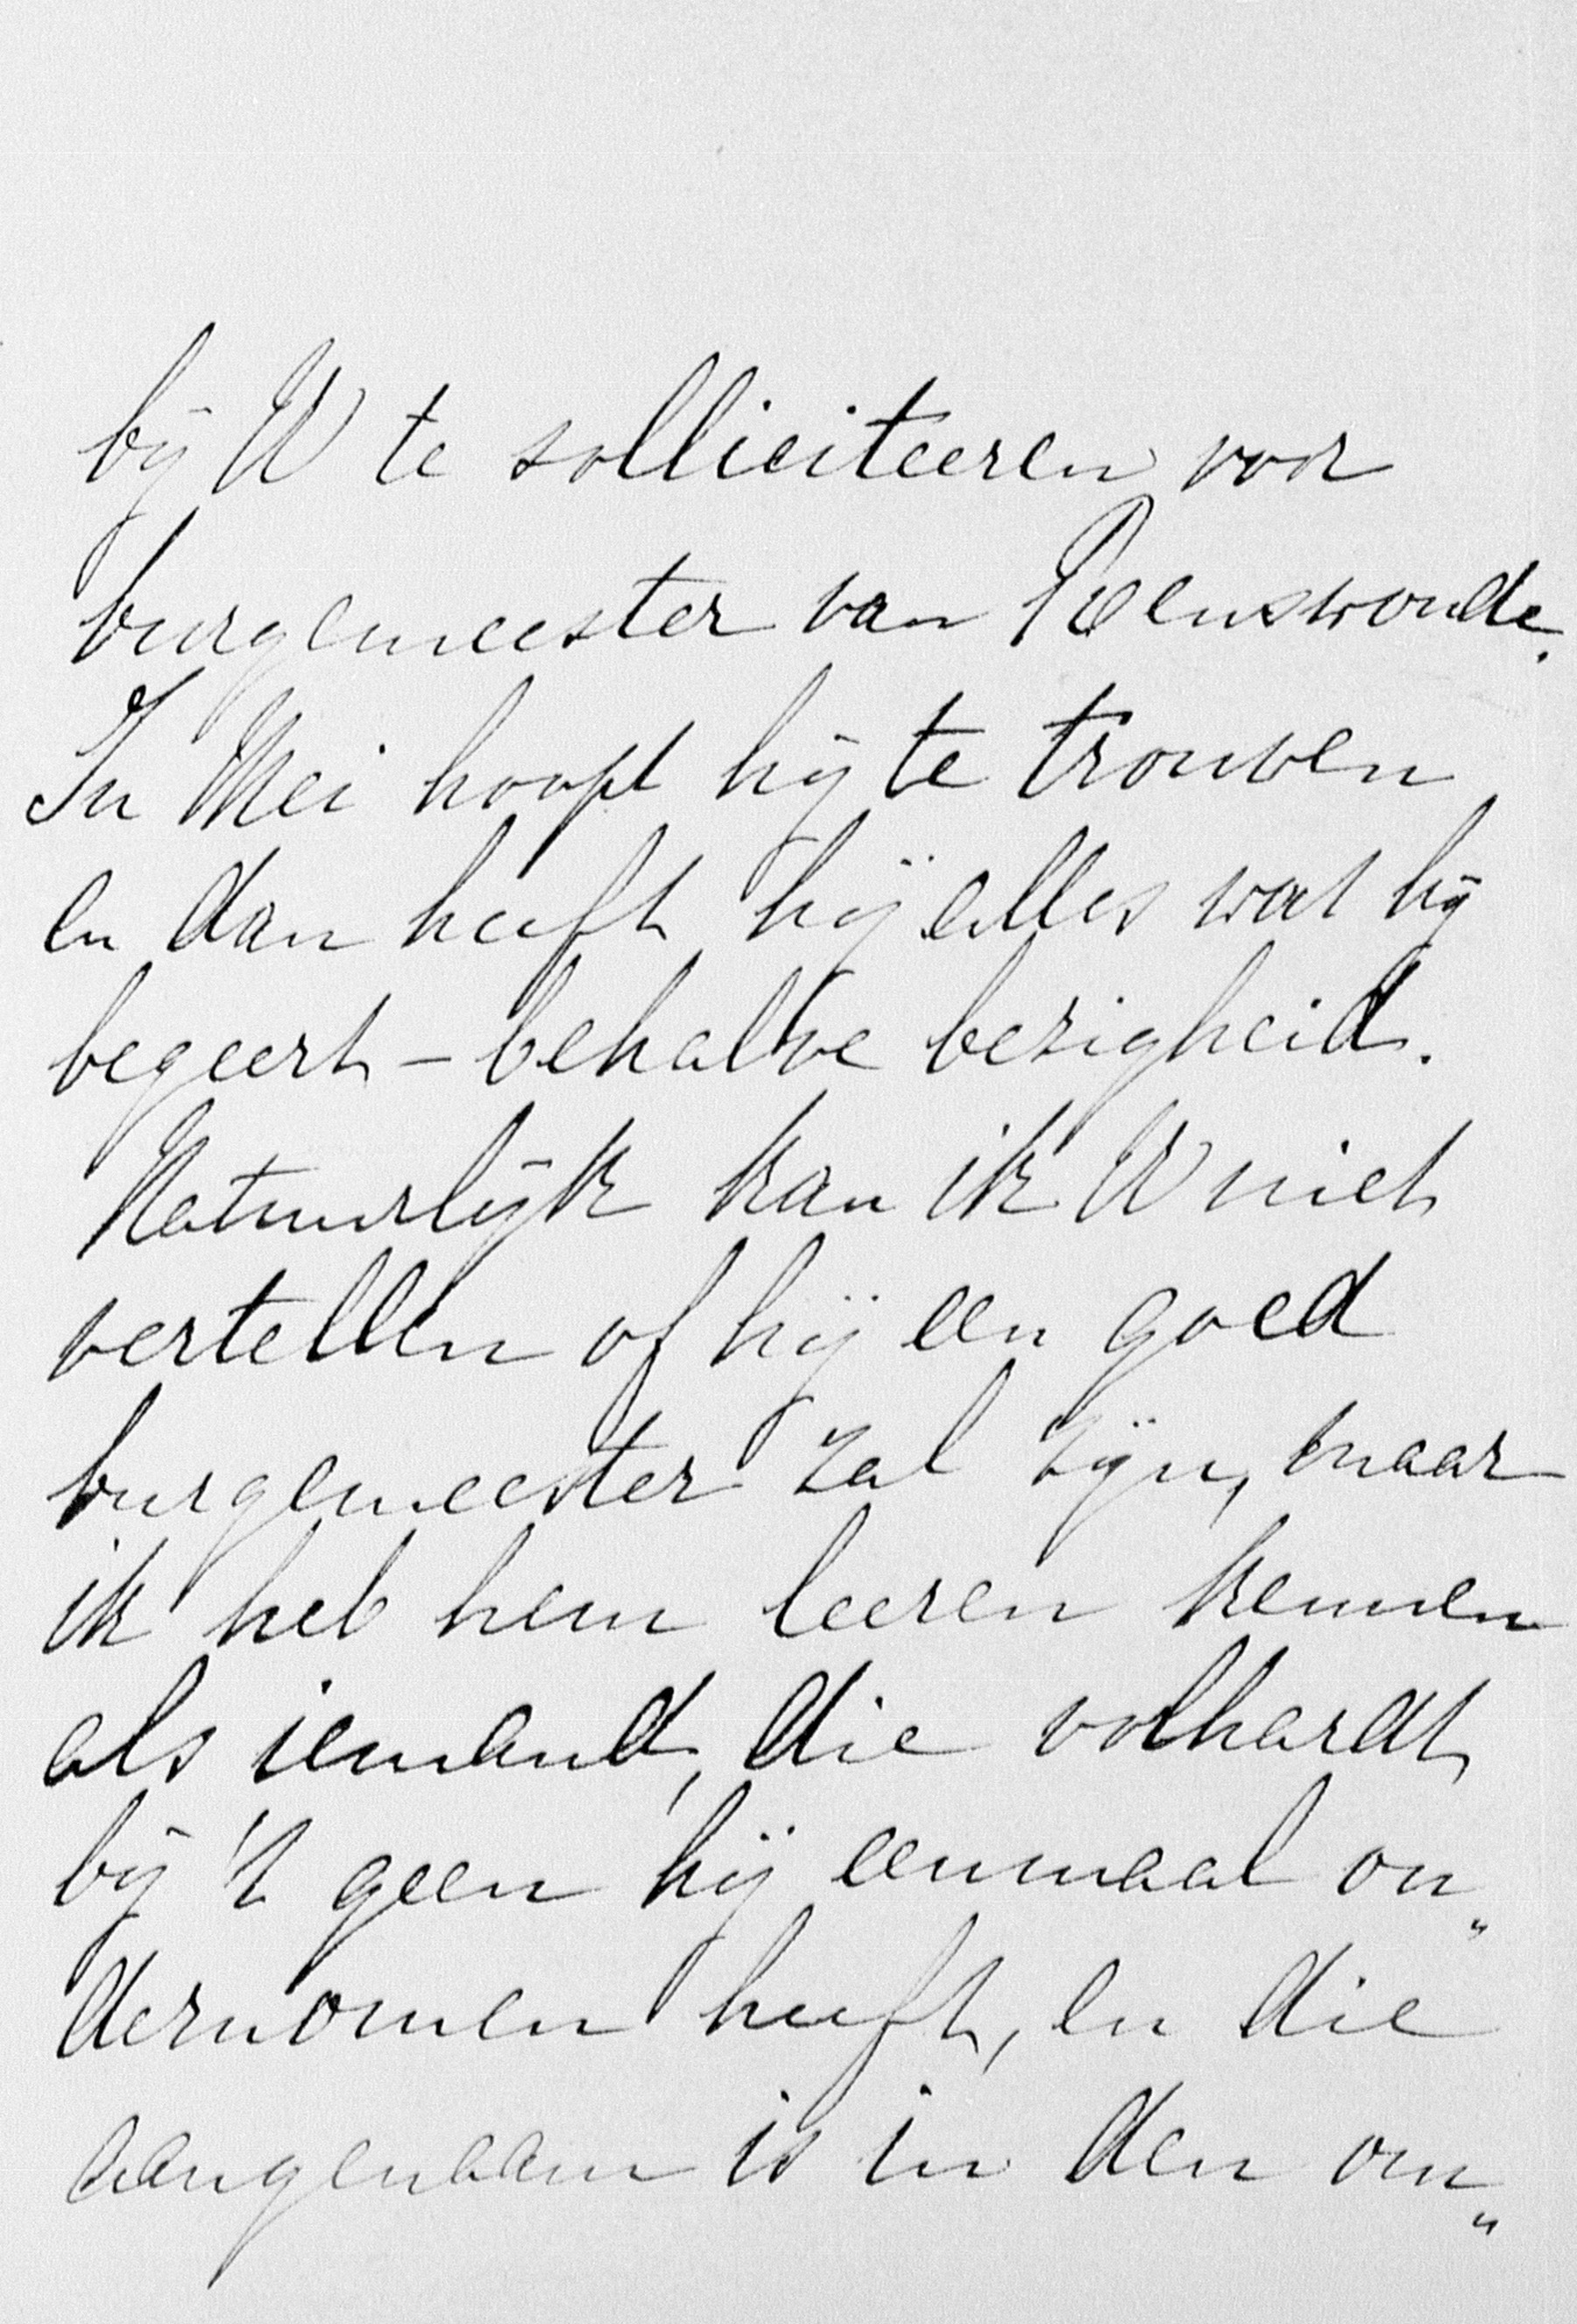 bij U te solliciteeren voor
burgemeester van Renswoude.
In Mei hoopt hij te trouwen
en dan heeft hij alles wat hij
begeert – behalve bezigheid.
Natuurlijk kan ik U niet
vertellen of hij een goed
burgemeester zal zijn, maar
ik heb hem leeren kennen
als iemand, die volhardt
bij 't geen hij eenmaal on„
dernomen heeft, en die
aangenaam is in den om„